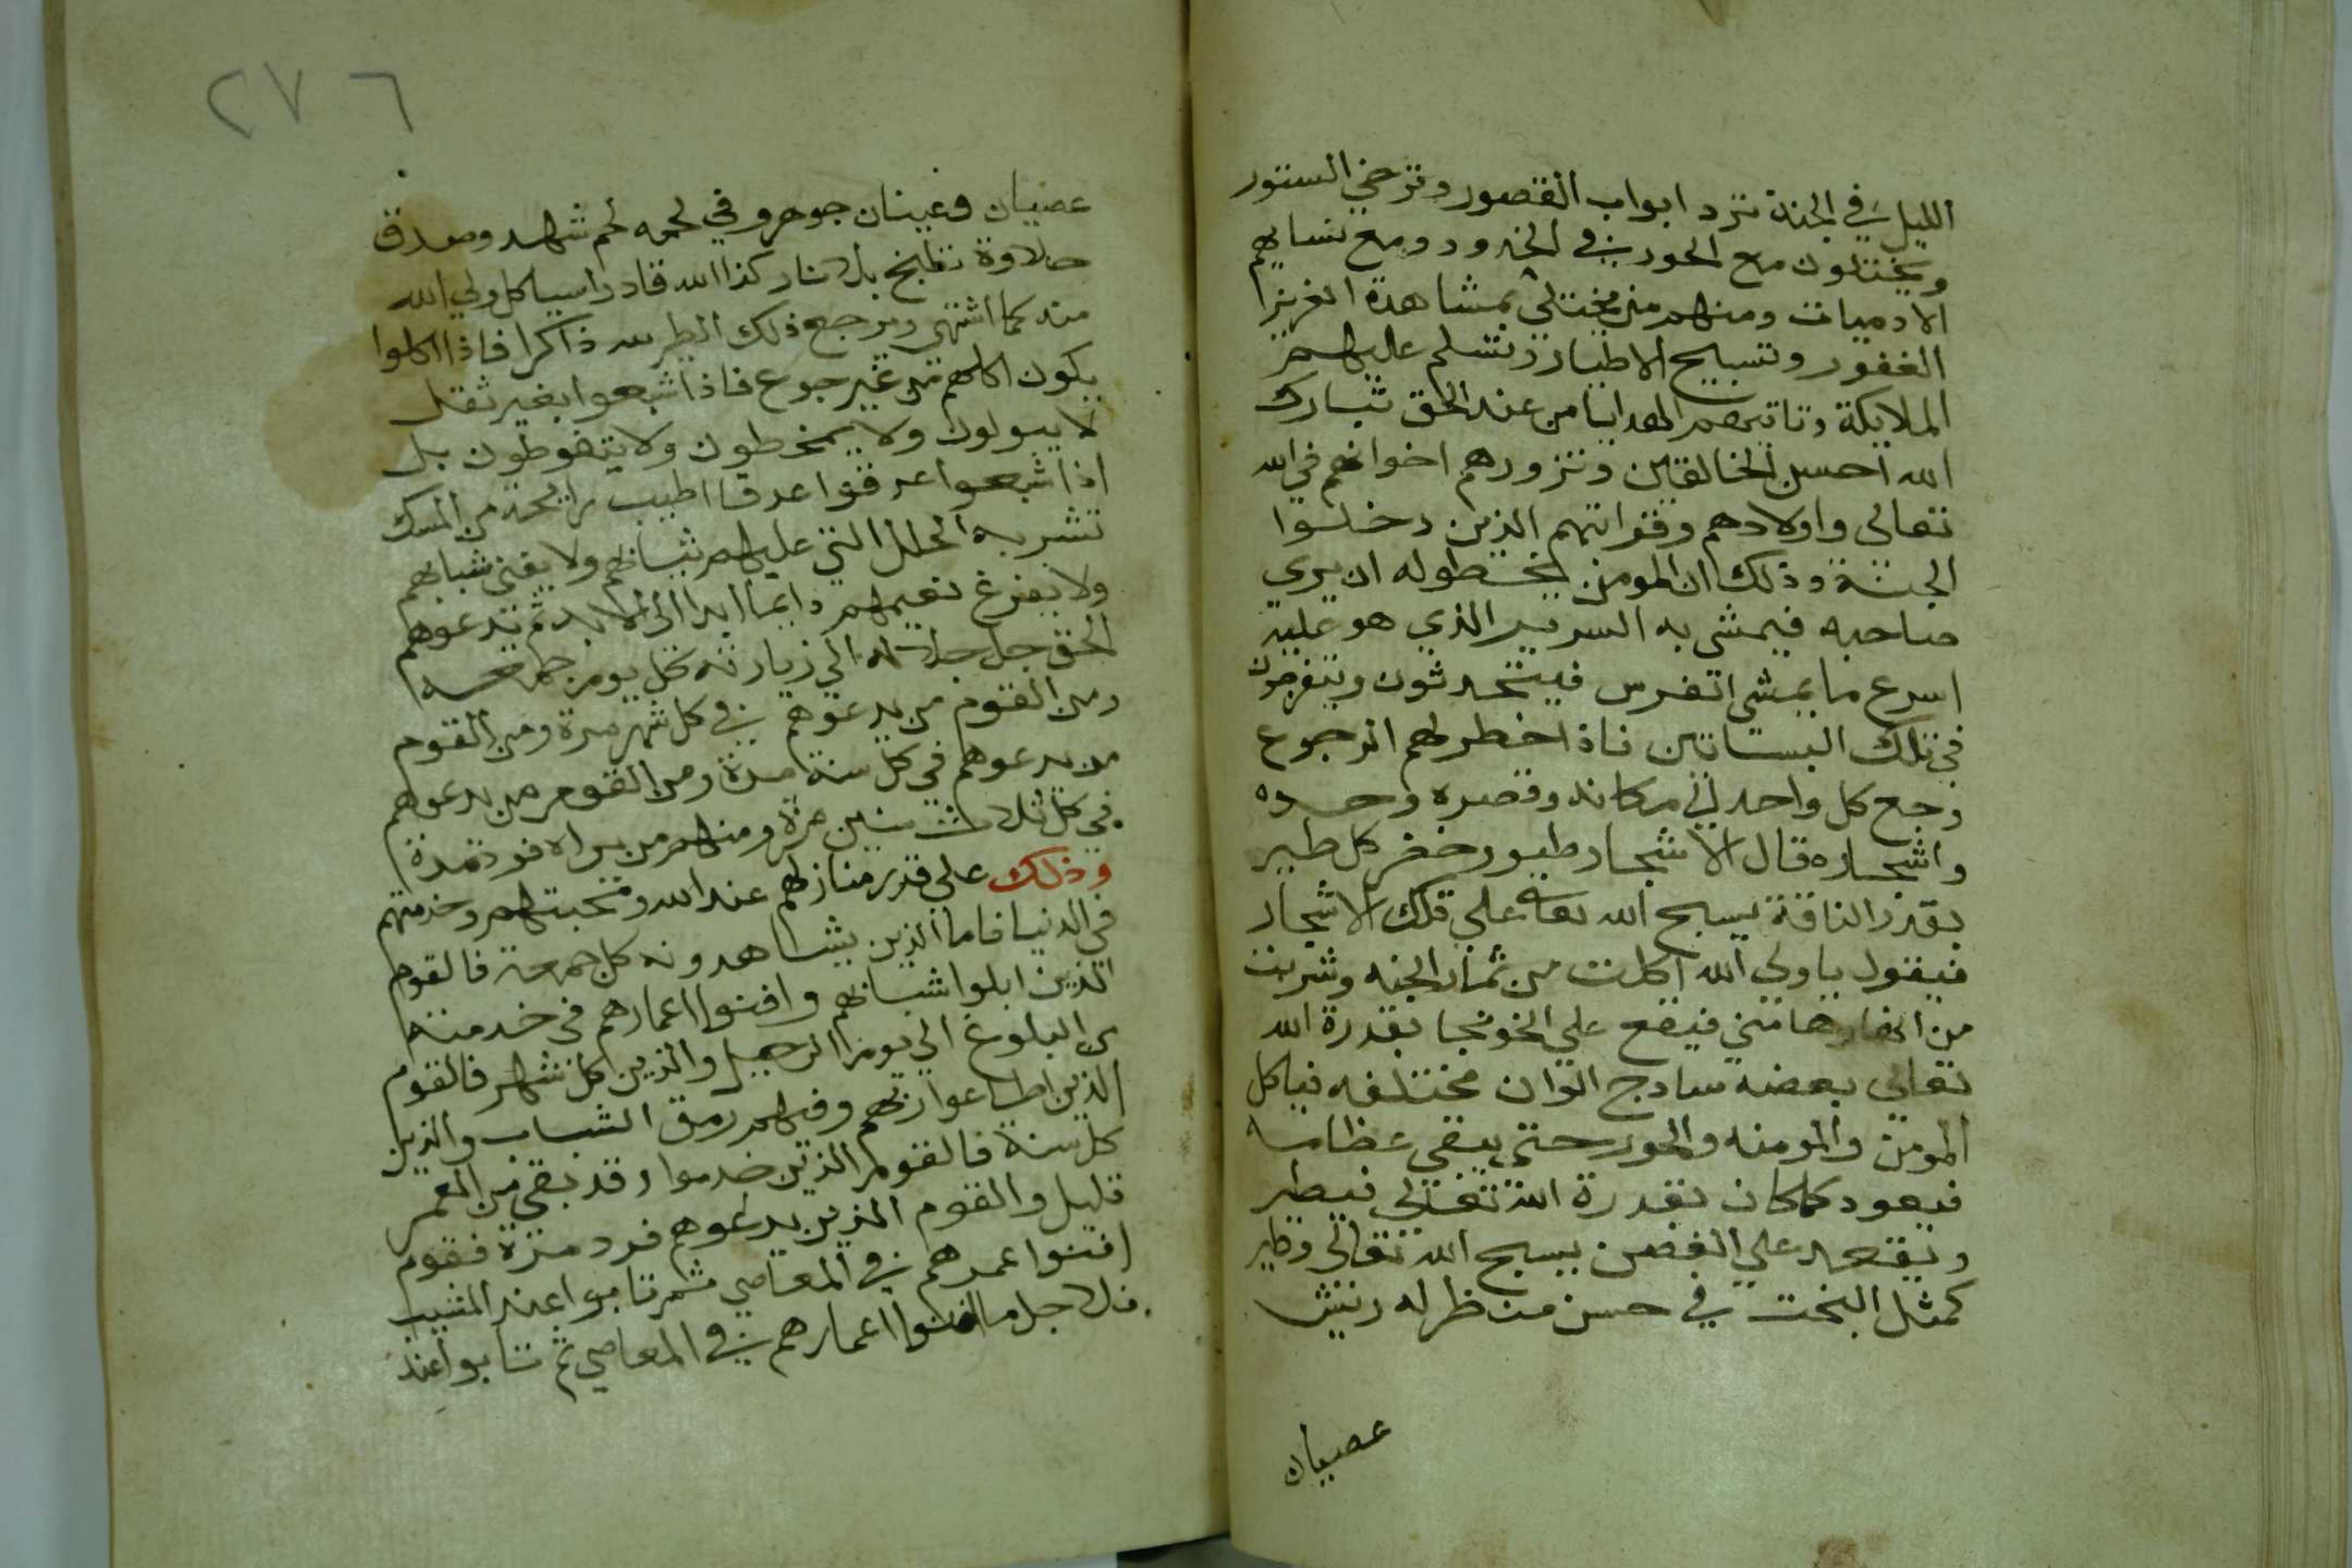 الليل في الجنة ترد ابواب القصور وترخي الستور
ويختلون مع الحور في الخدود ومع نسايهم
الادميات ومنهم من يختلي بمشاهدة العزيز
الغفور وتسبيح الاطيار وتسلم عليهم
الملايكة وتاتيهم الهدايا من عند الحق تبارك
الله احسن الخالقين وتزورهم اخوانهم في الله
تعالى واولادهم وقراتهم الذين دخلوا
الجنة وذلك ان المومن يخطر له ان يري
صاحبه فيمشي به السرير الذي هو عليه
اسرع ما يمشي الفرس فيتحدثون ويتفرجون
في تلك البساتين فاذا خطر لهم الرجوع
رجع كل واحد الي مكانه وقصره وحوره
واشجاره قال الاشجار طيور خضر كل طير
بقدر الناقة يسبح الله تعا علي تلك الاشجار
فيقول يا ولي الله اكلت من ثمار الجنه وشربت
من انهارها مني فيقع علي الخونجا بقدرة الله
تعالي بعضه سادج الوان مختلفه فياكل
المومن والمومنه والحور حتي يبقي عظاما
فيعود كما كان بقدرة الله تعالي فيطير
ويقعد علي الغصن يسبح الله تعالى وطير
كمثل البخت في حسن منظر له ريش
عصيان
٢٧٦
عصيان وعينان جوهر وفي لحمه لحم شهد وصدق
حلاوة تطبخ بلا نار كذا الله قادر اسيا كل ولي الله
منه كما اشتهي ويرجع ذلك الطير ذاكرا فاذا اكلوا
يكون اكلهم من غير جوع فاذا شبعوا بغير ثقل
لا يبولون ولا يمخطون ولا يتغوطون بل
اذا شبعوا عرقوا عرقا اطيب رايحة من المسك
تشربه الحلل التي عليهم ثيابهم ولا يفني شبابهم
ولا يفرغ نعيمهم دايما ابدا الي الابد ثم تدعوهم
الحق جل جلاله الي زيارته كل يوم جمعه
ومن القوم من يدعوهم في كل شهر مرة ومن القوم
من يدعوهم في كل سنة مرة ومن القوم من يدعوهم
في كل ثلاث سنين مرة ومنهم من يراه فرد مرة
وذلك علي قدر منازلهم عند الله ومحبتهم وخدمتهم
في الدنيا فاما الذين يشاهدونه كل جمعة فالقوم
الذين ابلوا شبابهم وافنوا اعمارهم في خدمته
من البلوغ الي يوم الرحيل والذين كل شهر فالقوم
الذين اطاعوا ربهم وفيهم رمق الشباب والذين
كل سنة فالقوم الذين خدموا وقد بقي من العمر
قليل والقوم الذين يدعوهم فرد مرة فقوم
افنوا عمرهم في المعاصي ثم تابوا عند المشيب
فلاجل ما افنوا اعمارهم في المعاصي ثم تابوا عند